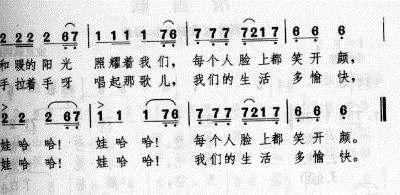 2 2 2 2 67 | 1 1 1 1 76 | 7 7 7 7 7217 | 6 6 6. |
和暖的阳光 照耀着我们， 每个人脸上都笑开颜，
手拉着手呀 唱起那歌儿， 我们的生活多愉快，
2. 2 2 67 | 1. 1 1 76 | 7 7 7 7 7217 | 6 6 6. ‖
娃哈哈！ 娃哈哈！ 每个人脸上都笑开颜。
娃哈哈！ 娃哈哈！ 我们的生活多愉快。